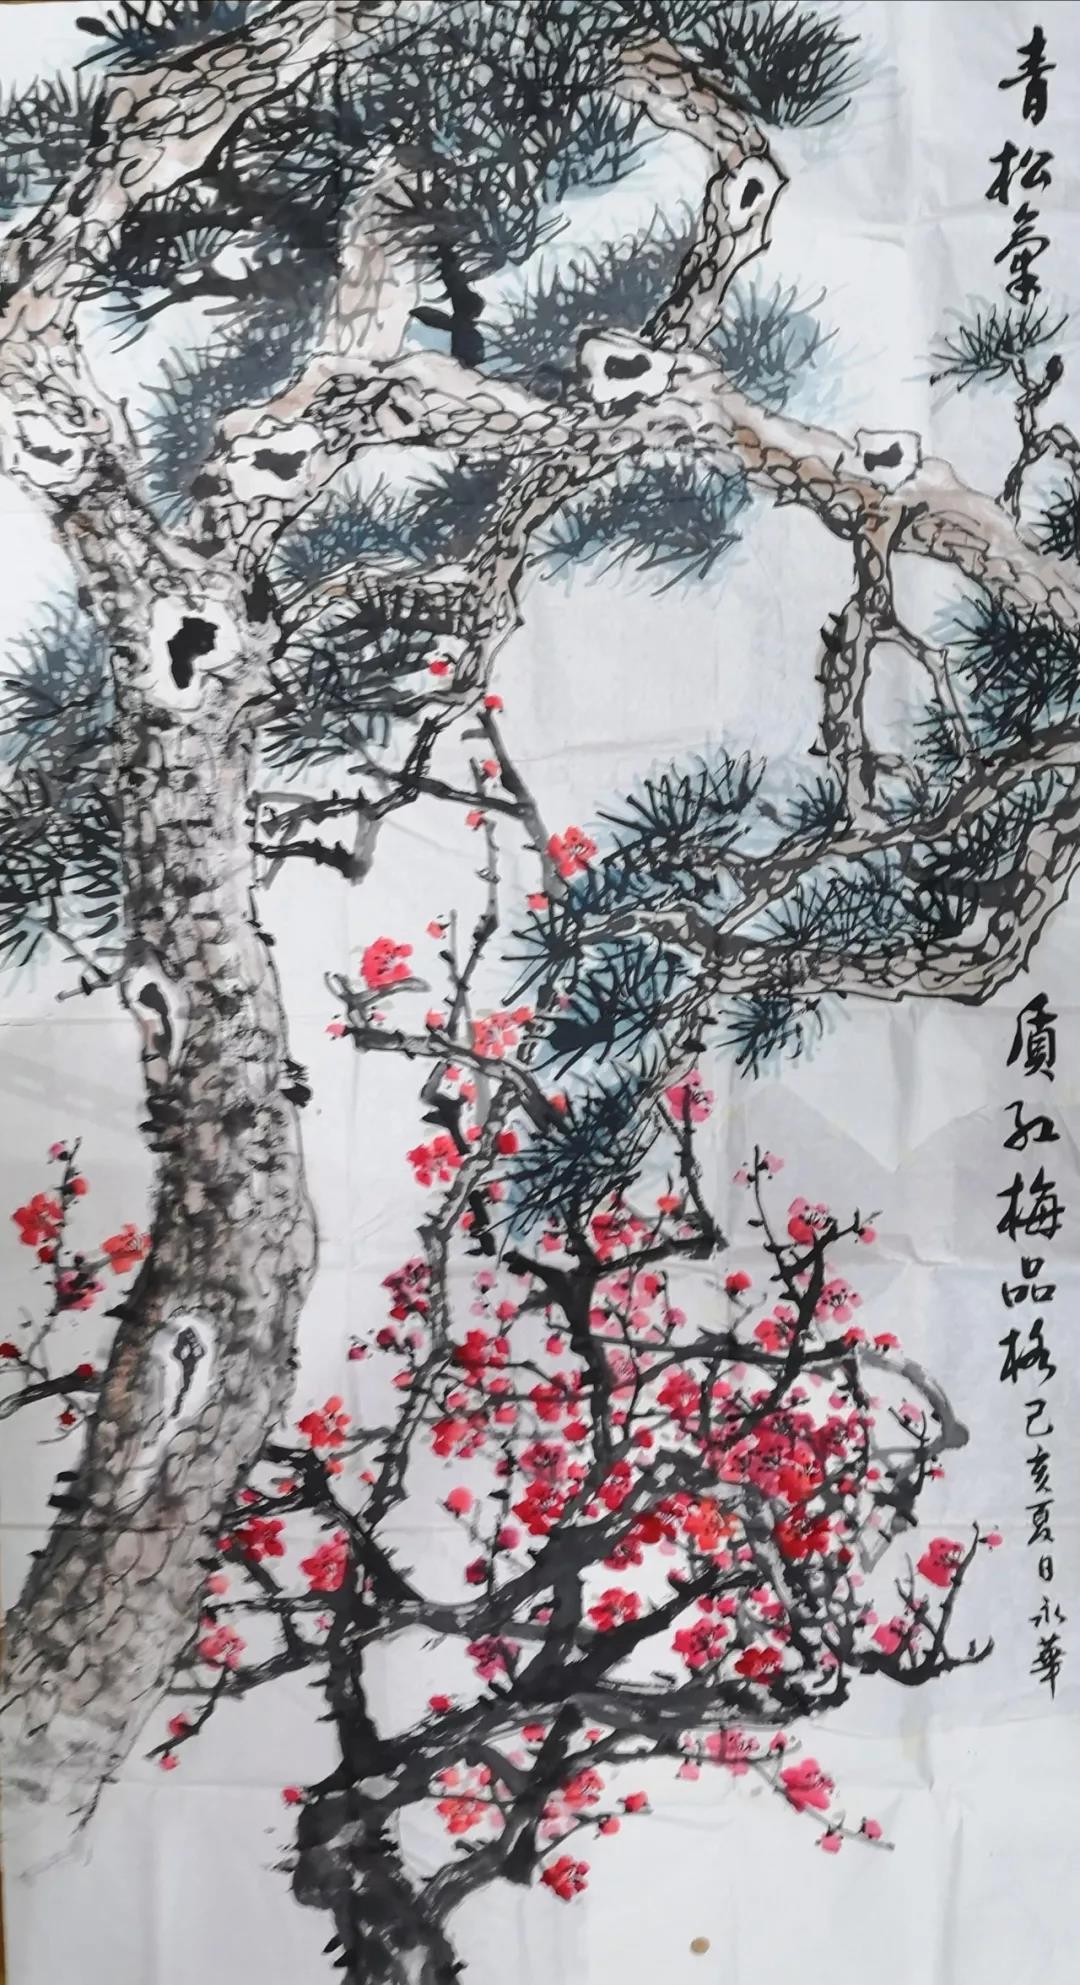 青松氣質红梅品格己亥夏日永華